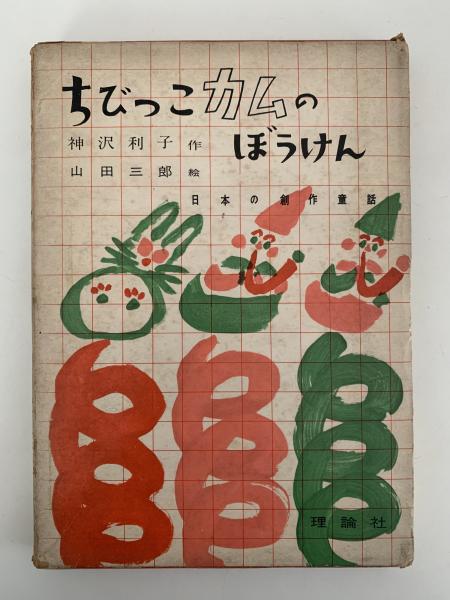 ちびっこカムの
ぼうけん
神沢利子 作
山田三郎 絵
日本の創作童話
理論社